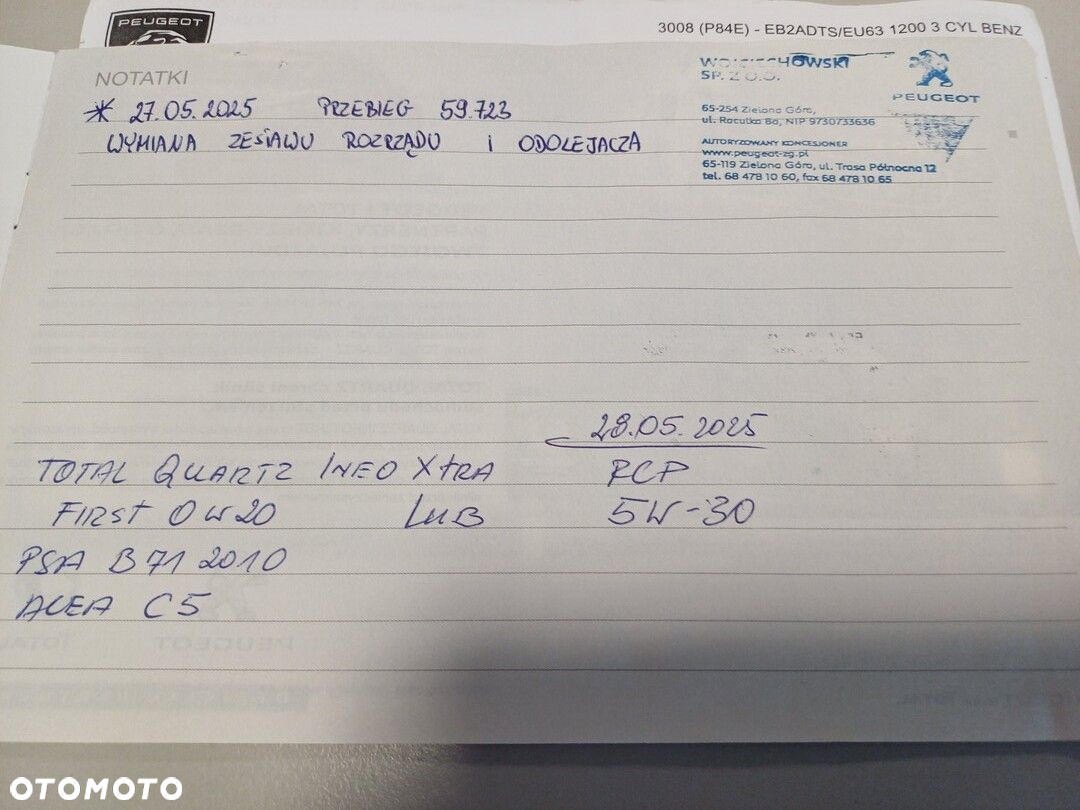 PEUGEOT
3008 (P84E) - EB2ADTS/EU63 1200 3 CYL BENZ
NOTATKI
WOJCIECHOWSKI
SP. Z O.O.
65-254 Zielona Góra,
ul. Racula 8a, NIP 9730733636
AUTORYZOWANY KONCESJONER
www.peugeot-zg.pl
65-119 Zielona Góra, ul. Trasa Północna 12
tel. 68 478 10 60, fax 68 478 10 65
PEUGEOT
* 27.05.2025 PRZEBIEG 59.723
WYMIANA ZESTAWU ROZRZĄDU I ODOLEJACZA
28.05.2025
TOTAL QUARTZ INEO XtRA RCP
FIRST 0W20 LUB 5W-30
PSA B71 2010
ACEA C5
OTOMOTO